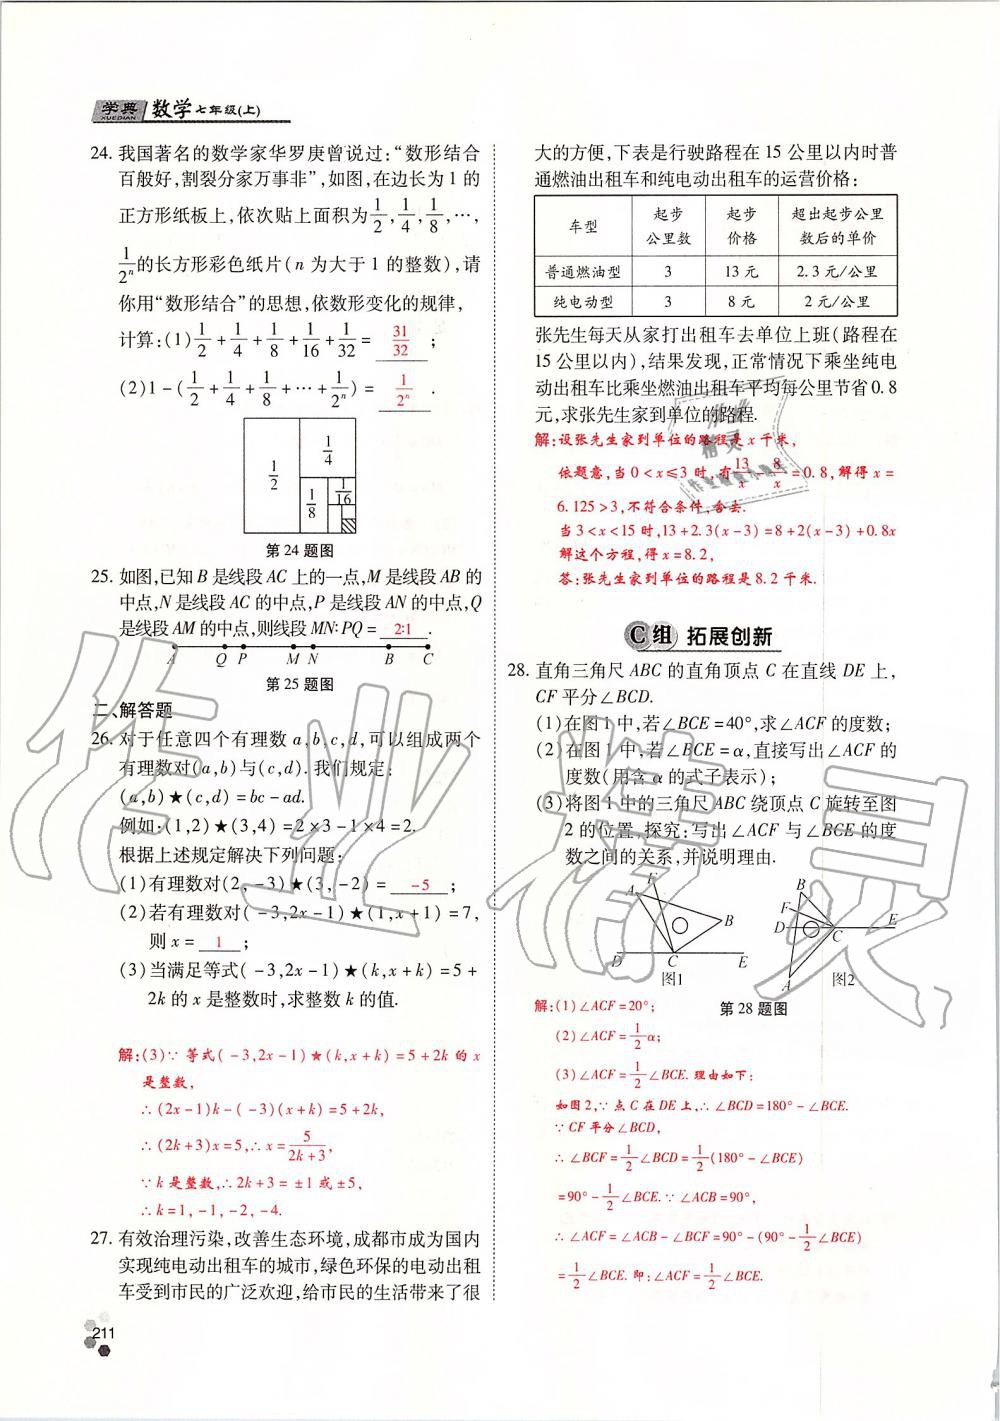 学典 数学 七年级(上)
XUEDIAN
24. 我国著名的数学家华罗庚曾说过:“数形结合
百般好,割裂分家万事非”,如图,在边长为 1 的
正方形纸板上,依次贴上面积为1/2,1/4,1/8,…,
1/2ⁿ的长方形彩色纸片(n 为大于 1 的整数),请
你用“数形结合”的思想,依数形变化的规律,
计算:(1)1/2+1/4+1/8+1/16+1/32= 31/32 ;
(2)1-(1/2+1/4+1/8+…+1/2ⁿ)= 1/2ⁿ .
1/2 1/4 1/8 1/16
第 24 题图
25. 如图,已知 B 是线段 AC 上的一点,M 是线段 AB 的
中点,N 是线段 AC 的中点,P 是线段 AN 的中点,Q
是线段 AM 的中点,则线段 MN:PQ= 2:1 .
A Q P M N B C
第 25 题图
二、解答题
26. 对于任意四个有理数 a,b,c,d,可以组成两个
有理数对(a,b)与(c,d). 我们规定:
(a,b)★(c,d)=bc-ad.
例如:(1,2)★(3,4)=2×3-1×4=2.
根据上述规定解决下列问题:
(1)有理数对(2,-3)★(3,-2)= -5 ;
(2)若有理数对(-3,2x-1)★(1,x+1)=7,
则 x= 1 ;
(3)当满足等式(-3,2x-1)★(k,x+k)=5+
2k 的 x 是整数时,求整数 k 的值.
解:(3)∵ 等式(-3,2x-1)★(k,x+k)=5+2k 的 x
是整数,
∴(2x-1)k-(-3)(x+k)=5+2k,
∴(2k+3)x=5,∴x=5/(2k+3),
∵k 是整数,∴2k+3=±1 或±5,
∴k=1,-1,-2,-4.
27. 有效治理污染,改善生态环境,成都市成为国内
实现纯电动出租车的城市,绿色环保的电动出租
车受到市民的广泛欢迎,给市民的生活带来了很
211
大的方便,下表是行驶路程在 15 公里以内时普
通燃油出租车和纯电动出租车的运营价格:
车型 起步公里数 起步价格 超出起步公里数后的单价
普通燃油型 3 13 元 2.3 元/公里
纯电动型 3 8 元 2 元/公里
张先生每天从家打出租车去单位上班(路程在
15 公里以内),结果发现,正常情况下乘坐纯电
动出租车比乘坐燃油出租车平均每公里节省 0.8
元,求张先生家到单位的路程.
解:设张先生家到单位的路程是 x 千米,
依题意,当 0<x≤3 时,有13/x-8/x=0.8,解得 x=
6.125>3,不符合条件,舍去.
当 3<x<15 时,13+2.3(x-3)=8+2(x-3)+0.8x
解这个方程,得 x=8.2,
答:张先生家到单位的路程是 8.2 千米.
C组 拓展创新
28. 直角三角尺 ABC 的直角顶点 C 在直线 DE 上,
CF 平分∠BCD.
(1)在图 1 中,若∠BCE=40°,求∠ACF 的度数;
(2)在图 1 中,若∠BCE=α,直接写出∠ACF 的
度数(用含 α 的式子表示);
(3)将图 1 中的三角尺 ABC 绕顶点 C 旋转至图
2 的位置,探究:写出∠ACF 与∠BCE 的度
数之间的关系,并说明理由.
A F B D C E
图1
B F D C E A
图2
第 28 题图
解:(1)∠ACF=20°;
(2)∠ACF=1/2α;
(3)∠ACF=1/2∠BCE. 理由如下:
如图 2,∵ 点 C 在 DE 上,∴∠BCD=180°-∠BCE.
∵ CF 平分∠BCD,
∴∠BCF=1/2∠BCD=1/2(180°-∠BCE)
=90°-1/2∠BCE. ∵∠ACB=90°,
∴∠ACF=∠ACB-∠BCF=90°-(90°-1/2∠BCE)
=1/2∠BCE. 即:∠ACF=1/2∠BCE.
作业精灵